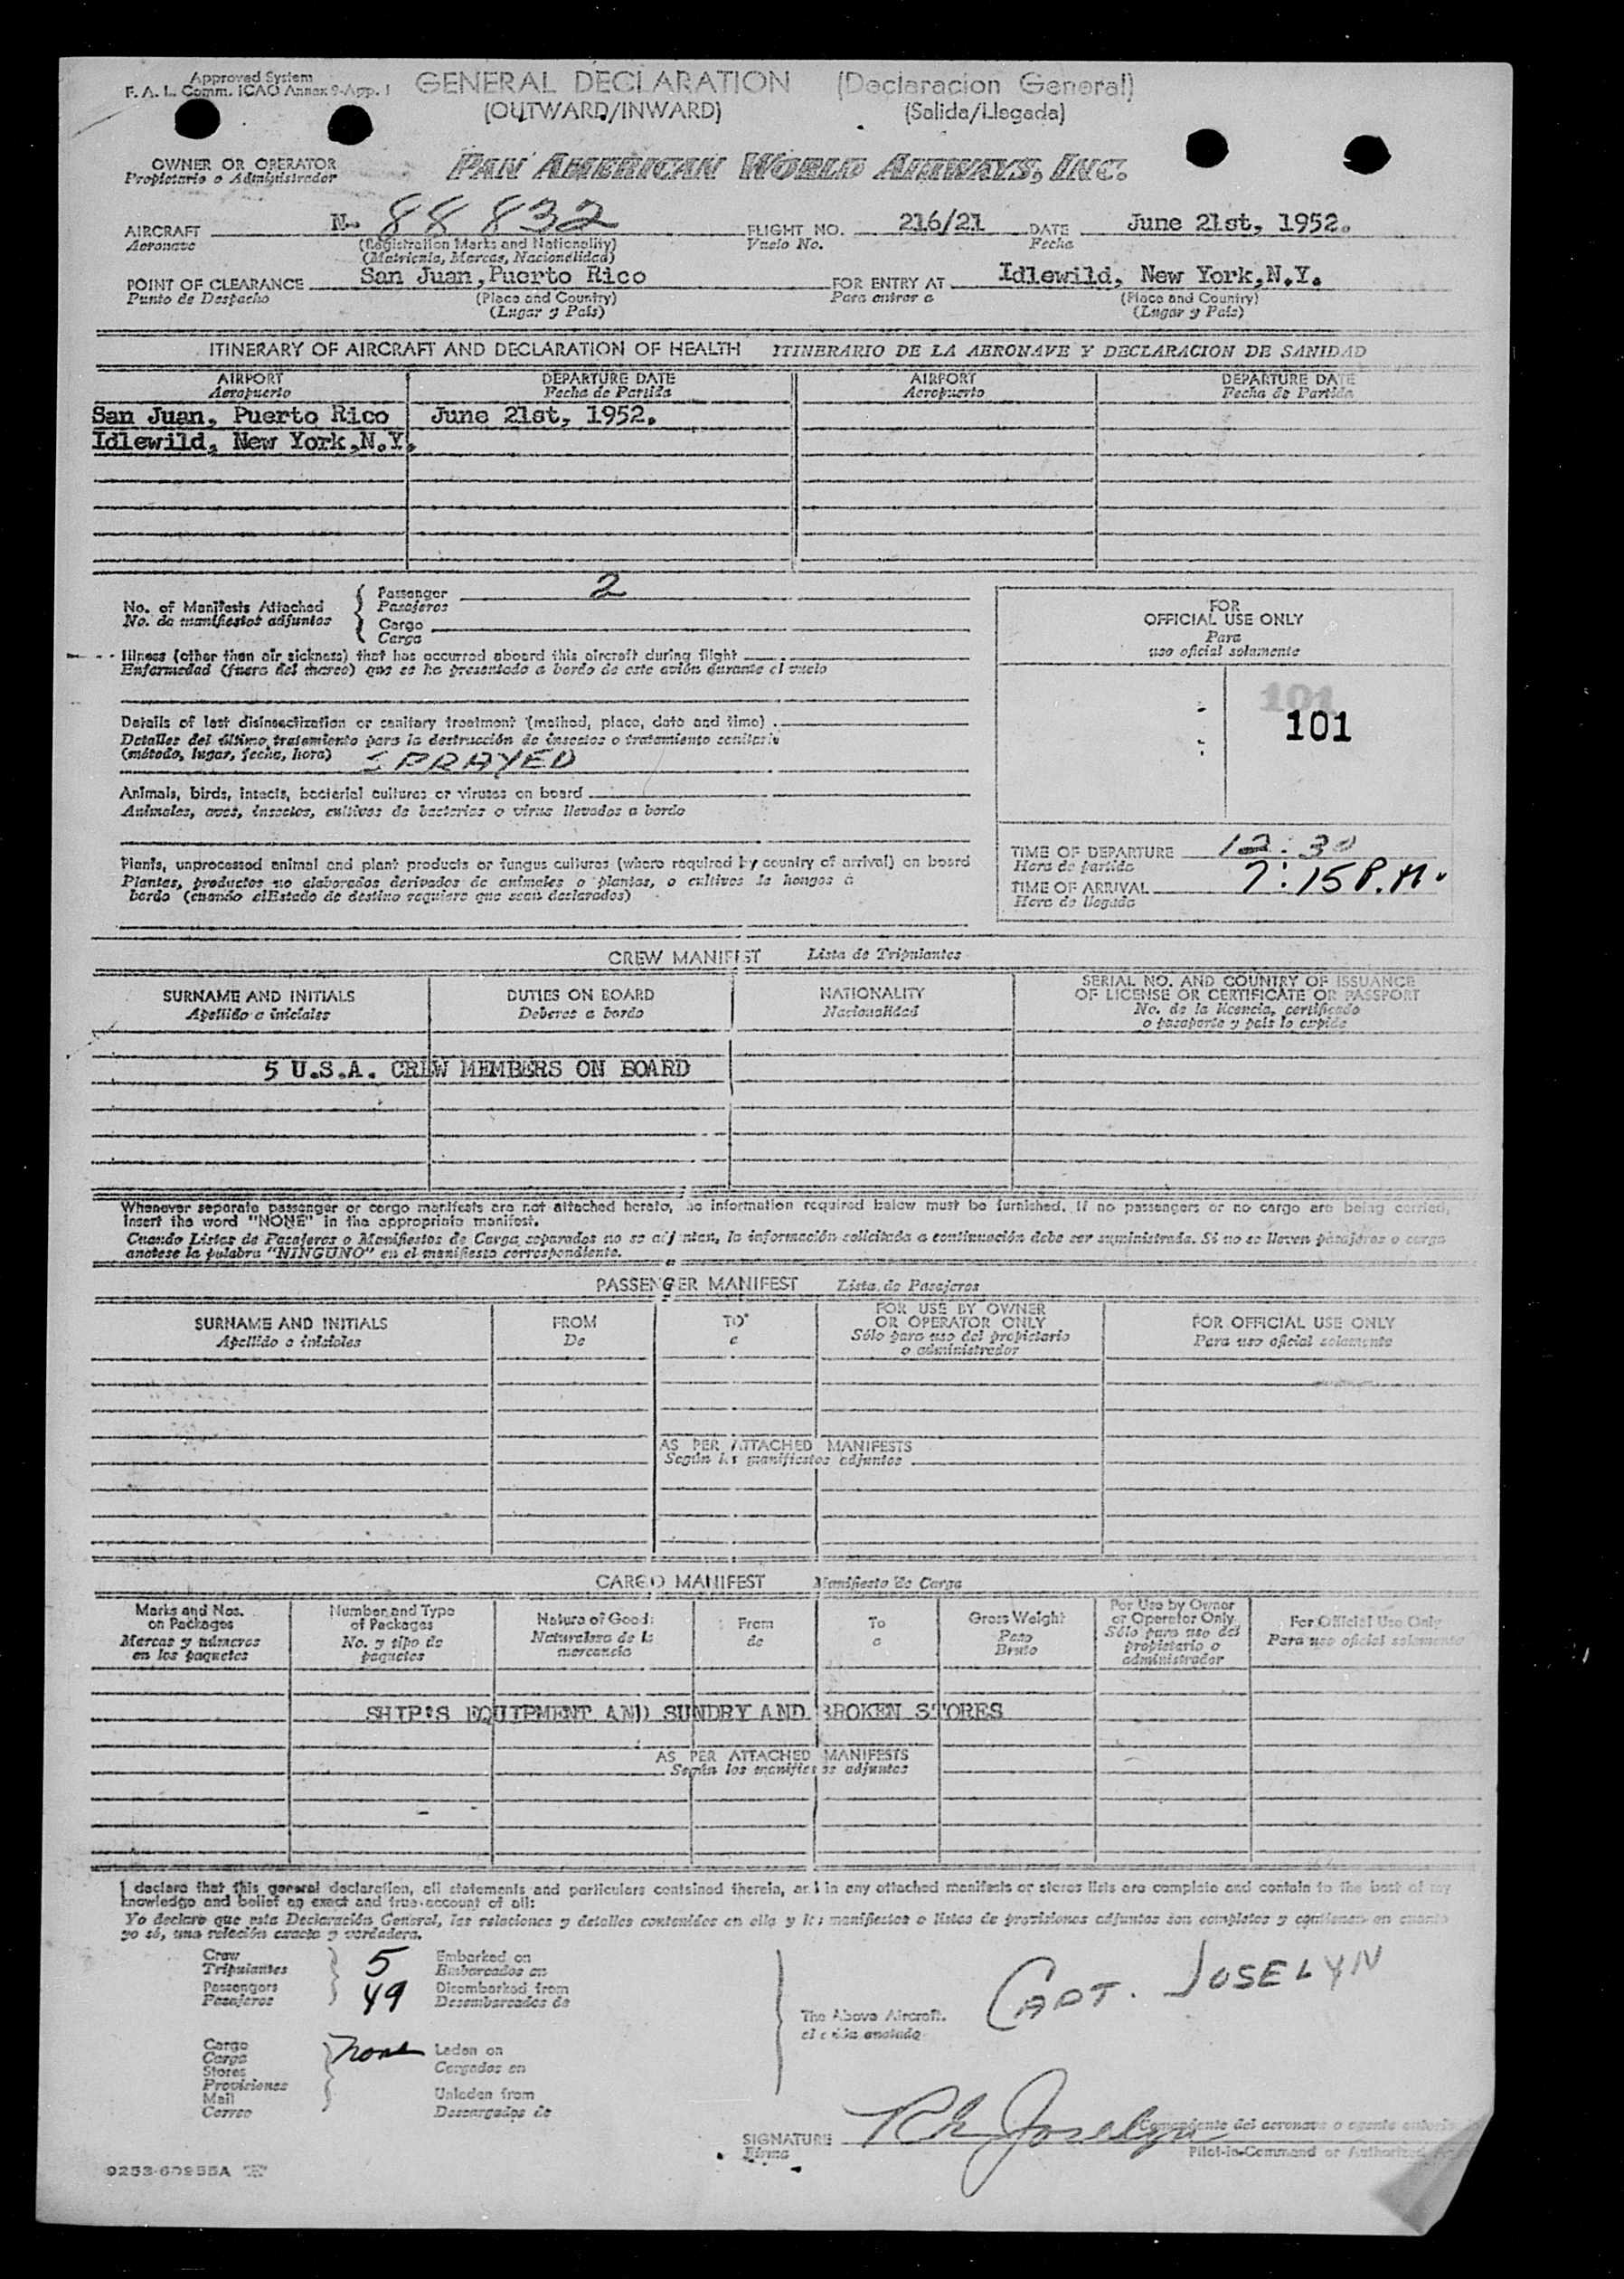 Approved System
F. A. L. Comm. ICAO Annex 9-App. 1
GENERAL DECLARATION (Declaracion General)
(OUTWARD/INWARD) (Salida/Llegada)
OWNER OR OPERATOR
Propietario o Administrador
PAN AMERICAN WORLD AIRWAYS, INC.
AIRCRAFT N- 88832 FLIGHT NO. 216/21 DATE June 21st, 1952.
Aeronave (Registration Marks and Nationality) Vuelo No. Fecha
(Matricula, Marcas, Nacionalidad)
POINT OF CLEARANCE San Juan, Puerto Rico FOR ENTRY AT Idlewild, New York, N.Y.
Punto de Despacho (Place and Country) Para entrar a (Place and Country)
(Lugar y Pais) (Lugar y Pais)
ITINERARY OF AIRCRAFT AND DECLARATION OF HEALTH ITINERARIO DE LA AERONAVE Y DECLARACION DE SANIDAD
AIRPORT DEPARTURE DATE AIRPORT DEPARTURE DATE
Aeropuerto Fecha de Partida Aeropuerto Fecha de Partida
San Juan, Puerto Rico June 21st, 1952.
Idlewild, New York, N.Y.
No. of Manifests Attached
No. de manifiestos adjuntos
Passenger 2
Pasajeros
Cargo
Carga
Illness (other than air sickness) that has occurred aboard this aircraft during flight
Enfermedad (fuera del mareo) que se ha presentado a bordo de este avión durante el vuelo
Details of last disinsectization or sanitary treatment (method, place, date and time)
Detalles del último tratamiento para la destrucción de insectos o tratamiento sanitario
(método, lugar, fecha, hora) SPRAYED
Animals, birds, insects, bacterial cultures or viruses on board
Animales, aves, insectos, cultivos de bacterias o virus llevados a bordo
Plants, unprocessed animal and plant products or fungus cultures (where required by country of arrival) on board
Plantas, productos no elaborados derivados de animales o plantas, o cultivos de hongos a
bordo (cuando el Estado de destino requiere que sean declarados)
FOR
OFFICIAL USE ONLY
Para
uso oficial solamente
101
101
TIME OF DEPARTURE 12:30
Hora de partida
TIME OF ARRIVAL 7:15 P.M.
Hora de llegada
CREW MANIFEST Lista de Tripulantes
SURNAME AND INITIALS DUTIES ON BOARD NATIONALITY SERIAL NO. AND COUNTRY OF ISSUANCE
OF LICENSE OR CERTIFICATE OR PASSPORT
Apellido e iniciales Deberes a bordo Nacionalidad No. de la licencia, certificado
o pasaporte y pais lo expide
5 U.S.A. CREW MEMBERS ON BOARD
Whenever separate passenger or cargo manifests are not attached hereto, the information required below must be furnished. If no passengers or no cargo are being carried,
insert the word "NONE" in the appropriate manifest.
Cuando Listas de Pasajeros o Manifiestos de Carga separados no se adjuntan, la información solicitada a continuación debe ser suministrada. Si no se llevan pasajeros o carga
anotese la palabra "NINGUNO" en el manifiesto correspondiente.
PASSENGER MANIFEST Lista de Pasajeros
SURNAME AND INITIALS FROM TO FOR USE BY OWNER
OR OPERATOR ONLY FOR OFFICIAL USE ONLY
Apellido e iniciales De a Sólo para uso del propietario
o administrador Para uso oficial solamente
AS PER ATTACHED MANIFESTS
Según los manifiestos adjuntos
CARGO MANIFEST Manifiesto de Carga
Marks and Nos.
on Packages
Marcas y números
en los paquetes
Number and Type
of Packages
No. y tipo de
paquetes
Nature of Goods
Naturaleza de la
mercancia
From
de
To
a
Gross Weight
Peso
Bruto
For Use by Owner
or Operator Only
Sólo para uso del
propietario o
administrador
For Official Use Only
Para uso oficial solamente
SHIP'S EQUIPMENT AND SUNDRY AND BROKEN STORES
AS PER ATTACHED MANIFESTS
Según los manifiestos adjuntos
I declare that this general declaration, all statements and particulars contained therein, and in any attached manifests or stores lists are complete and contain to the best of my
knowledge and belief an exact and true account of all:
Yo declaro que esta Declaración General, las relaciones y detalles contenidos en ella y los manifiestos o listas de provisiones adjuntos son completos y contienen en cuanto
yo sé, una relación exacta y verdadera.
Crew 5 Embarked on
Tripulantes Embarcados en
Passengers 49 Disembarked from
Pasajeros Desembarcados de
Cargo none Laden on
Carga
Stores Cargados en
Provisiones
Mail Unladen from
Correo Descargados de
The Above Aircraft.
CAPT. JOSELYN
SIGNATURE R E Joselyn
Firma
Comandante del aeronave o agente
Pilot-in-Command or Authorized
9253-60955A